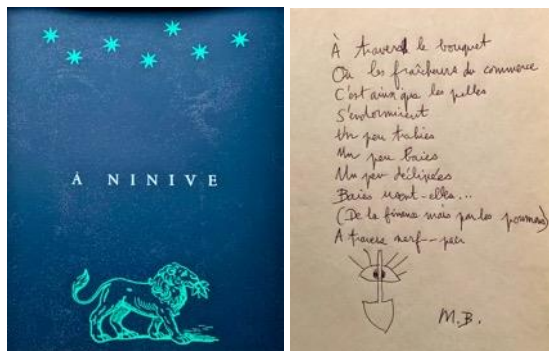 À NINIVE
À travers le bouquet
Où les fraîcheurs du commerce
C'est ainsi que les pelles
S'endormirent
Un peu trahies
Un peu baies
Un peu déclinées
Baies iront-elles...
(De la finesse mais par les poumons)
A travers nerf--peau
M.B.